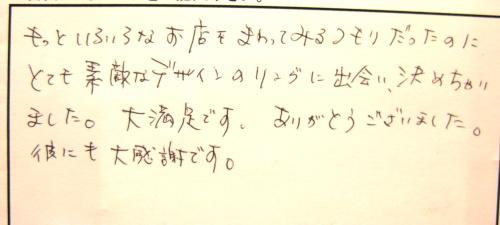 もっといろいろなお店をまわってみるつもりだったのに
とても素敵なデザインのリングに出会い、決めちゃい
ました。大満足です。ありがとうございました。
彼にも大感謝です。